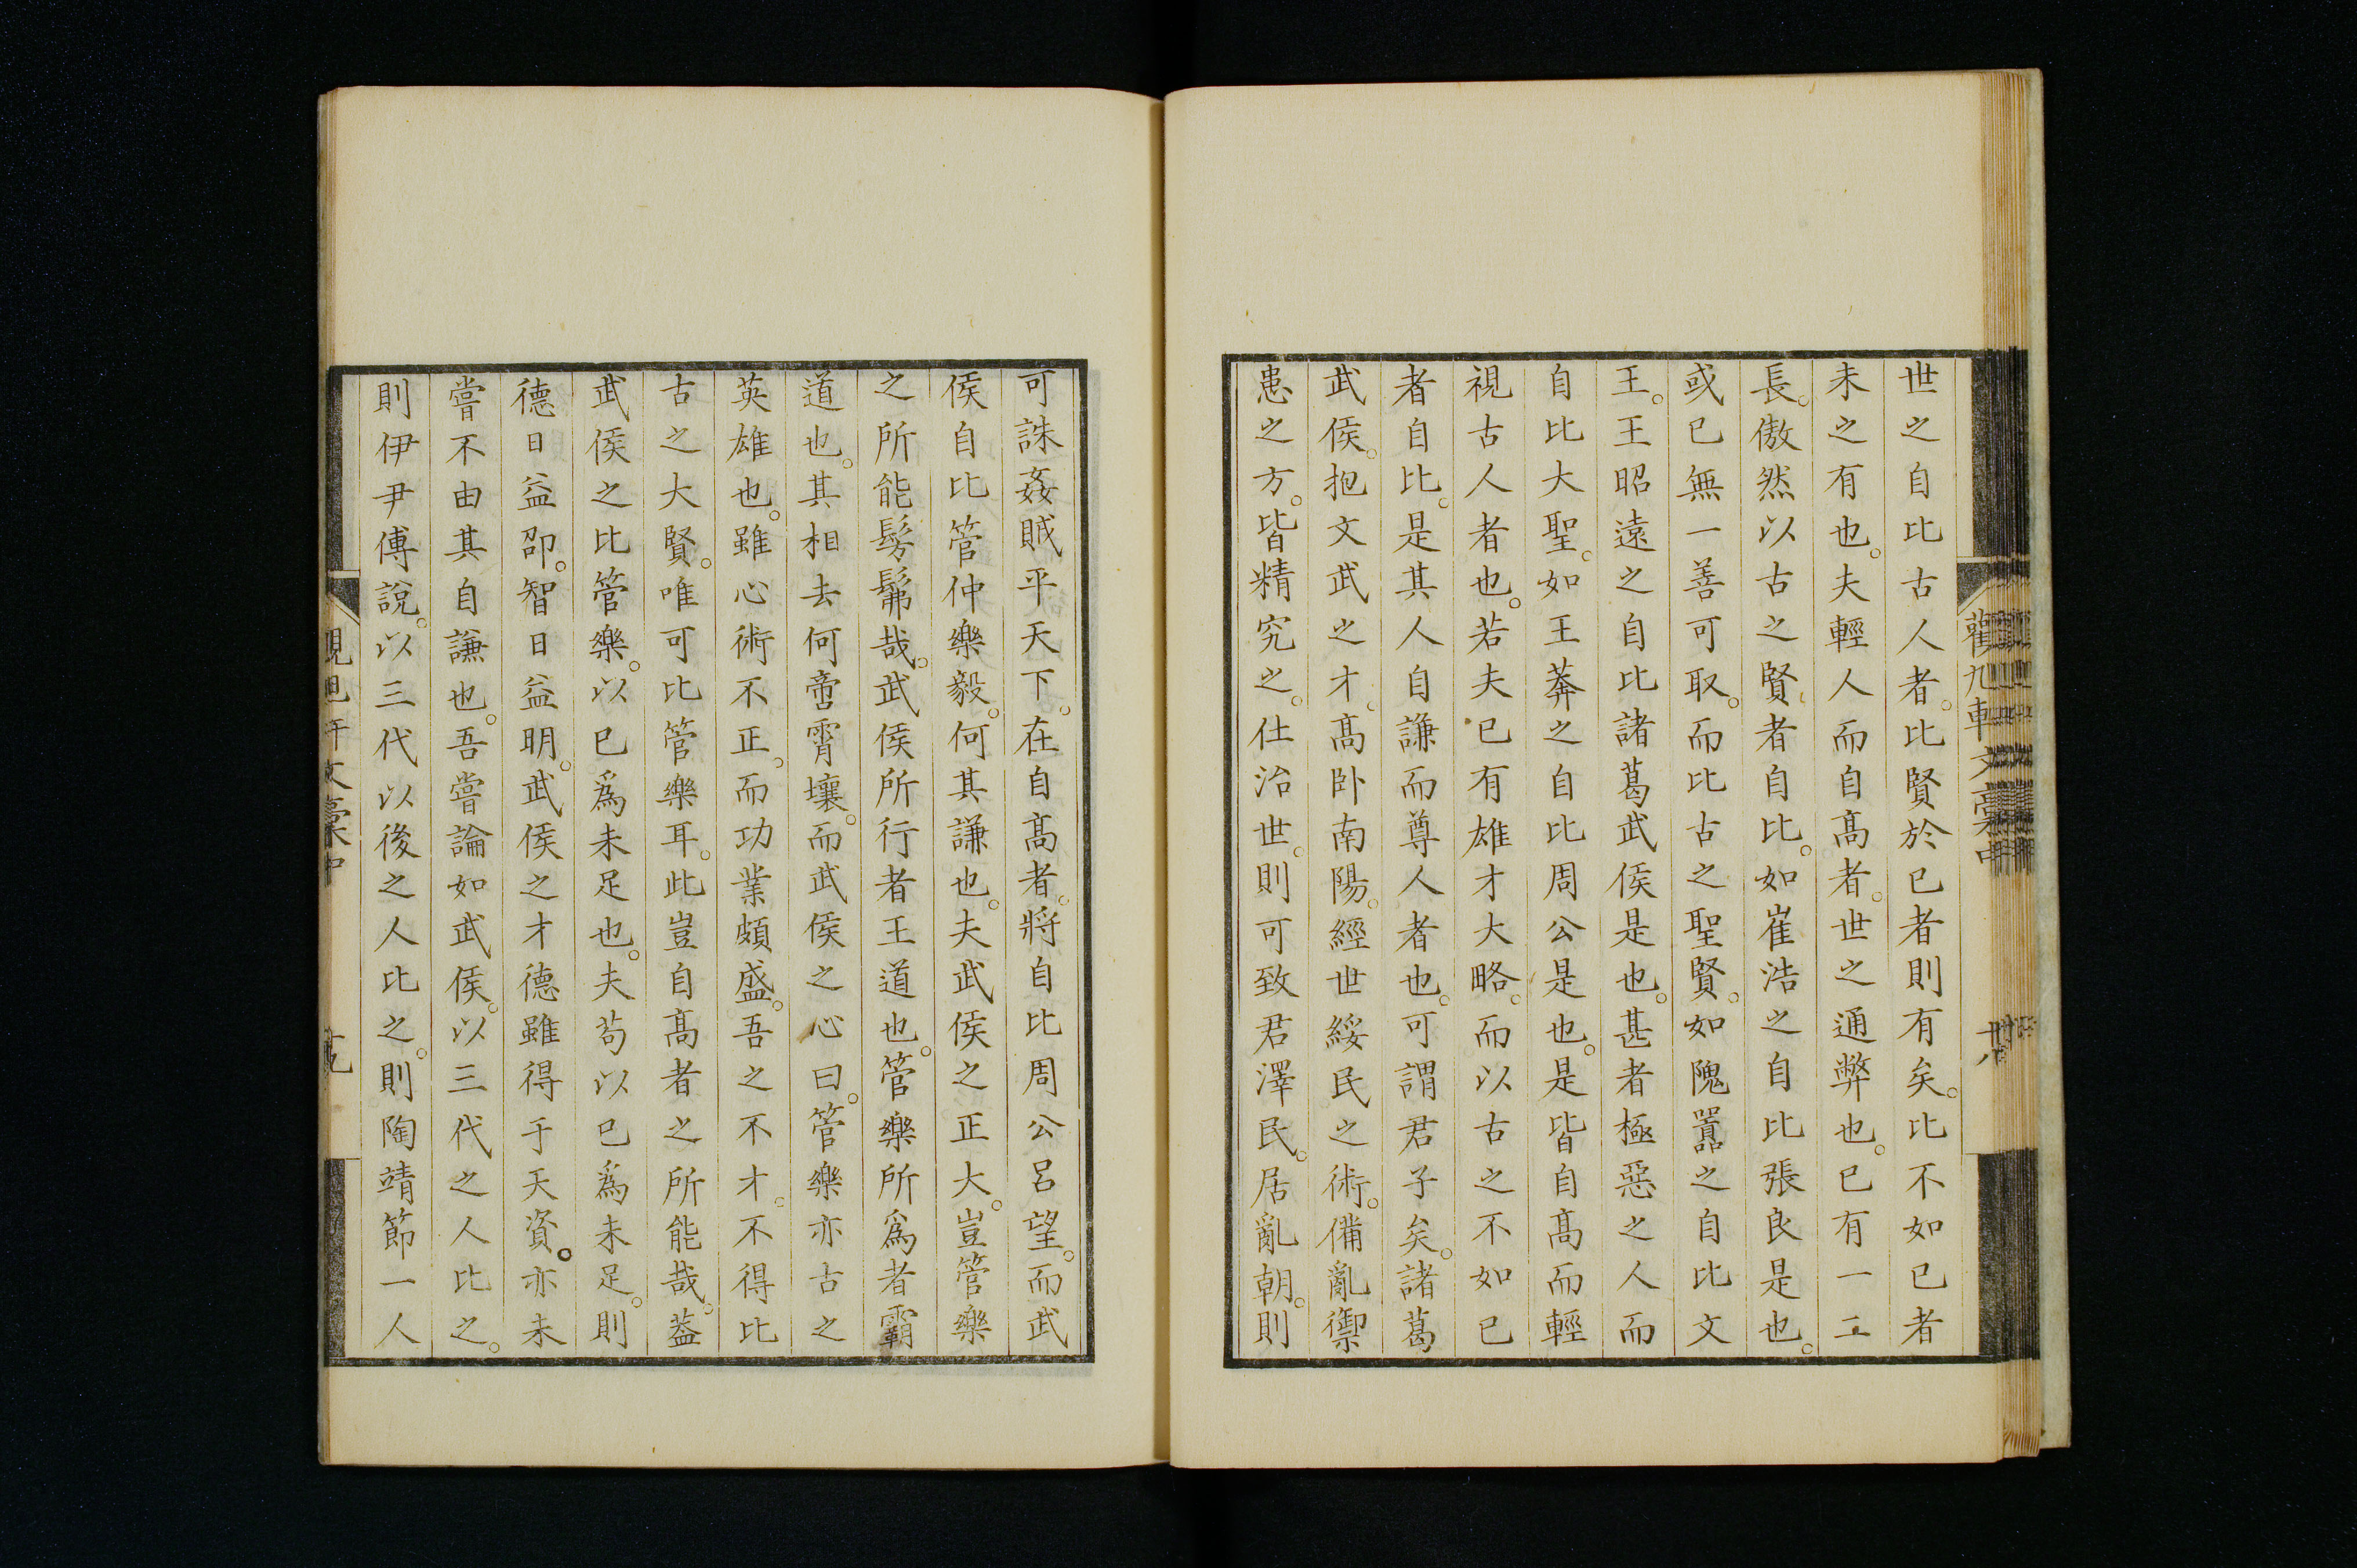 世之自比古人者。比賢於已者則有矣。比不如已者
未之有也。夫輕人而自髙者。世之通弊也。已有一工
長。傲然以古之賢者自比。如崔浩之自比張良是也。
或已無一善可取。而比古之聖賢。如隗囂之自比文
王。王昭遠之自比諸葛武侯是也。甚者極惡之人而
自比大聖。如王莽之自比周公是也。是皆自髙而輕
視古人者也。若夫已有雄才大略。而以古之不如已
者自比。是其人自謙而尊人者也。可謂君子矣。諸葛
武侯。抱文武之才。髙卧南陽。經世綏民之術。備亂禦
患之方。皆精究之。仕治世。則可致君澤民。居亂朝。則
可誅姦賊平天下。在自髙者。將自比周公呂望。而武
侯自比管仲樂毅。何其謙也。夫武侯之正大。豈管樂
之所能髣髴哉。武侯所行者王道也。管樂所爲者霸
道也。其相去何啻霄壤。而武侯之心曰。管樂亦古之
英雄也。雖心術不正。而功業頗盛。吾之不才。不得比
古之大賢。唯可比管樂耳。此豈自髙者之所能哉。葢
武侯之比管樂。以已爲未足也。夫苟以已爲未足。則
德日益卲。智日益明。武侯之才德雖得于天資。亦未
嘗不由其自謙也。吾嘗論如武侯。以三代之人比之。
則伊尹傅說。以三代以後之人比之。則陶靖節一人